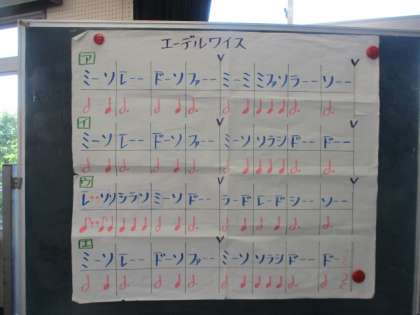 エーデルワイス
ア
ミーソ レーー ドーソ ファーー ミーミ ミファソ ラーー ソーー
イ
ミーソ レーー ドーソ ファーー ミーソ ソラシ ドーー ドーー
ウ
レーソソ シラソ ミーソ ドーー ラード レード シーー ソーー
エ
ミーソ レーー ドーソ ファーー ミーソ ソラシ ドーー ドー